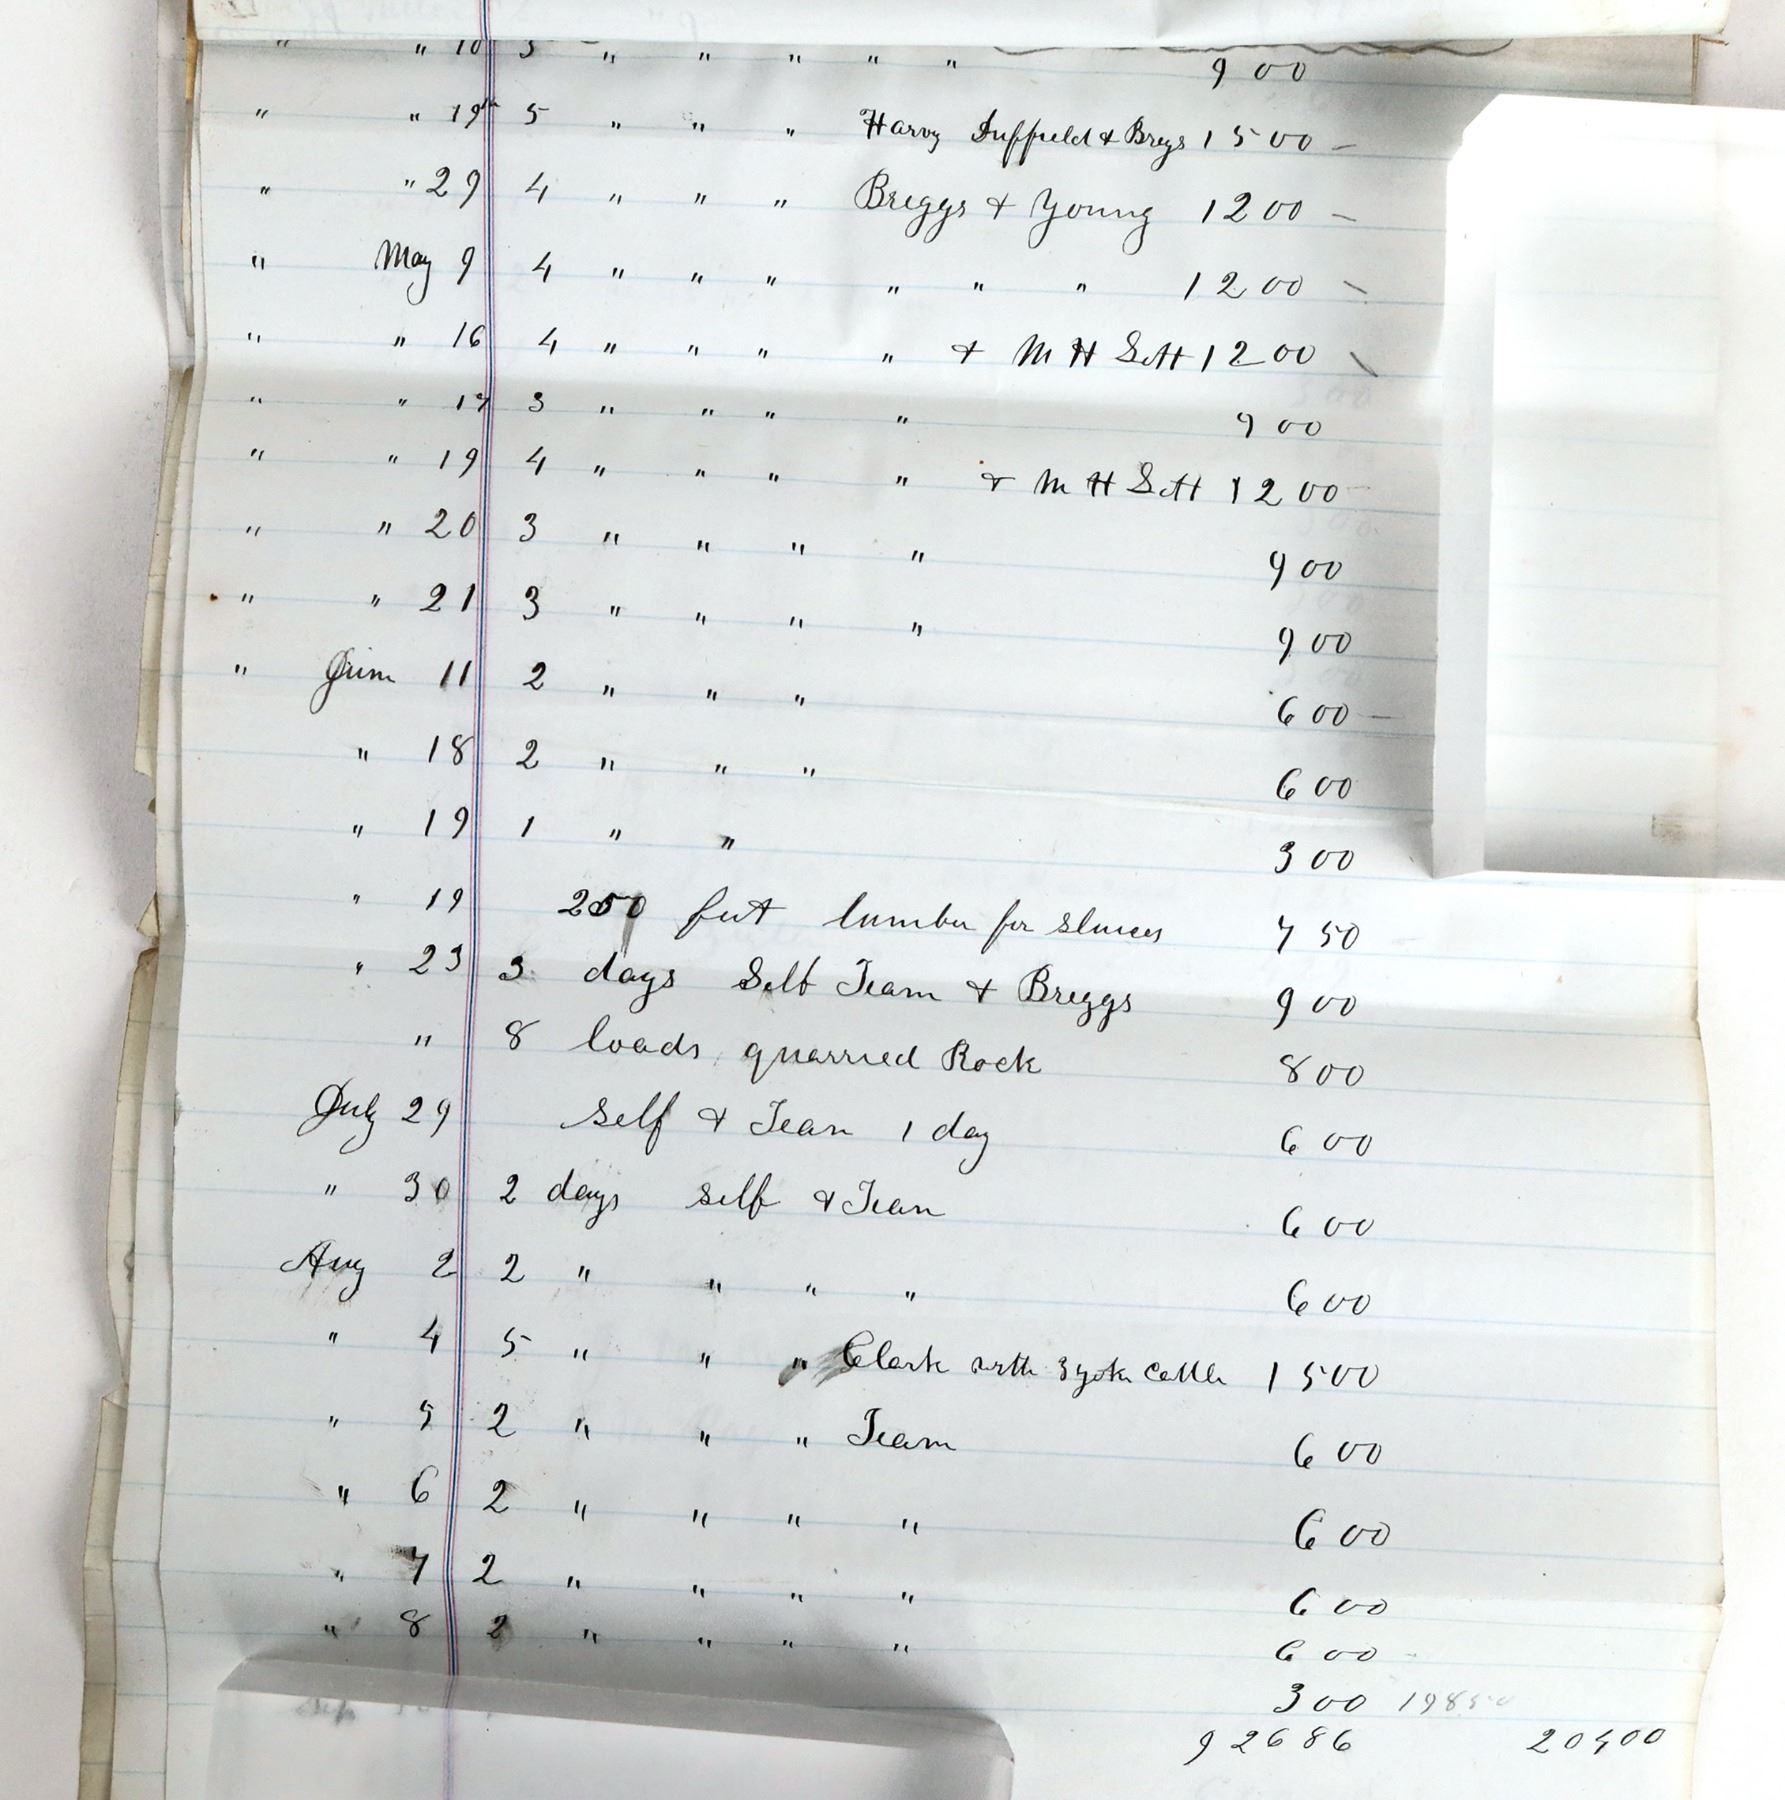 " " 10 3 " " " " " 9 00
" " 19th 5 " " " Harvy Duffield & Brggs 15 00 –
" " 29 4 " " " Breggs & Young 12 00 –
" May 9 4 " " " " " " 12 00 –
" " 16 4 " " " " & M H Sett 12 00 –
" " 17 3 " " " " 9 00
" " 19 4 " " " " & M H Sett 12 00 –
" " 20 3 " " " " 9 00
" " 21 3 " " " " 9 00
" June 11 2 " " " 6 00 –
" 18 2 " " " 6 00
" 19 1 " " 3 00
" 19 250 feet lumber for sluices 7 50
" 23 3 days Self Team & Breggs 9 00
" 8 loads quarried Rock 8 00
July 29 Self & Team 1 day 6 00
" 30 2 days self & Team 6 00
Aug 2 2 " " " " 6 00
" 4 5 " " " Clark with 3 yoke Cattle 15 00
" 5 2 " " " Team 6 00
" 6 2 " " " " 6 00
" 7 2 " " " " 6 00
" 8 2 " " " " 6 00
3 00 198 50
926 86 204 00